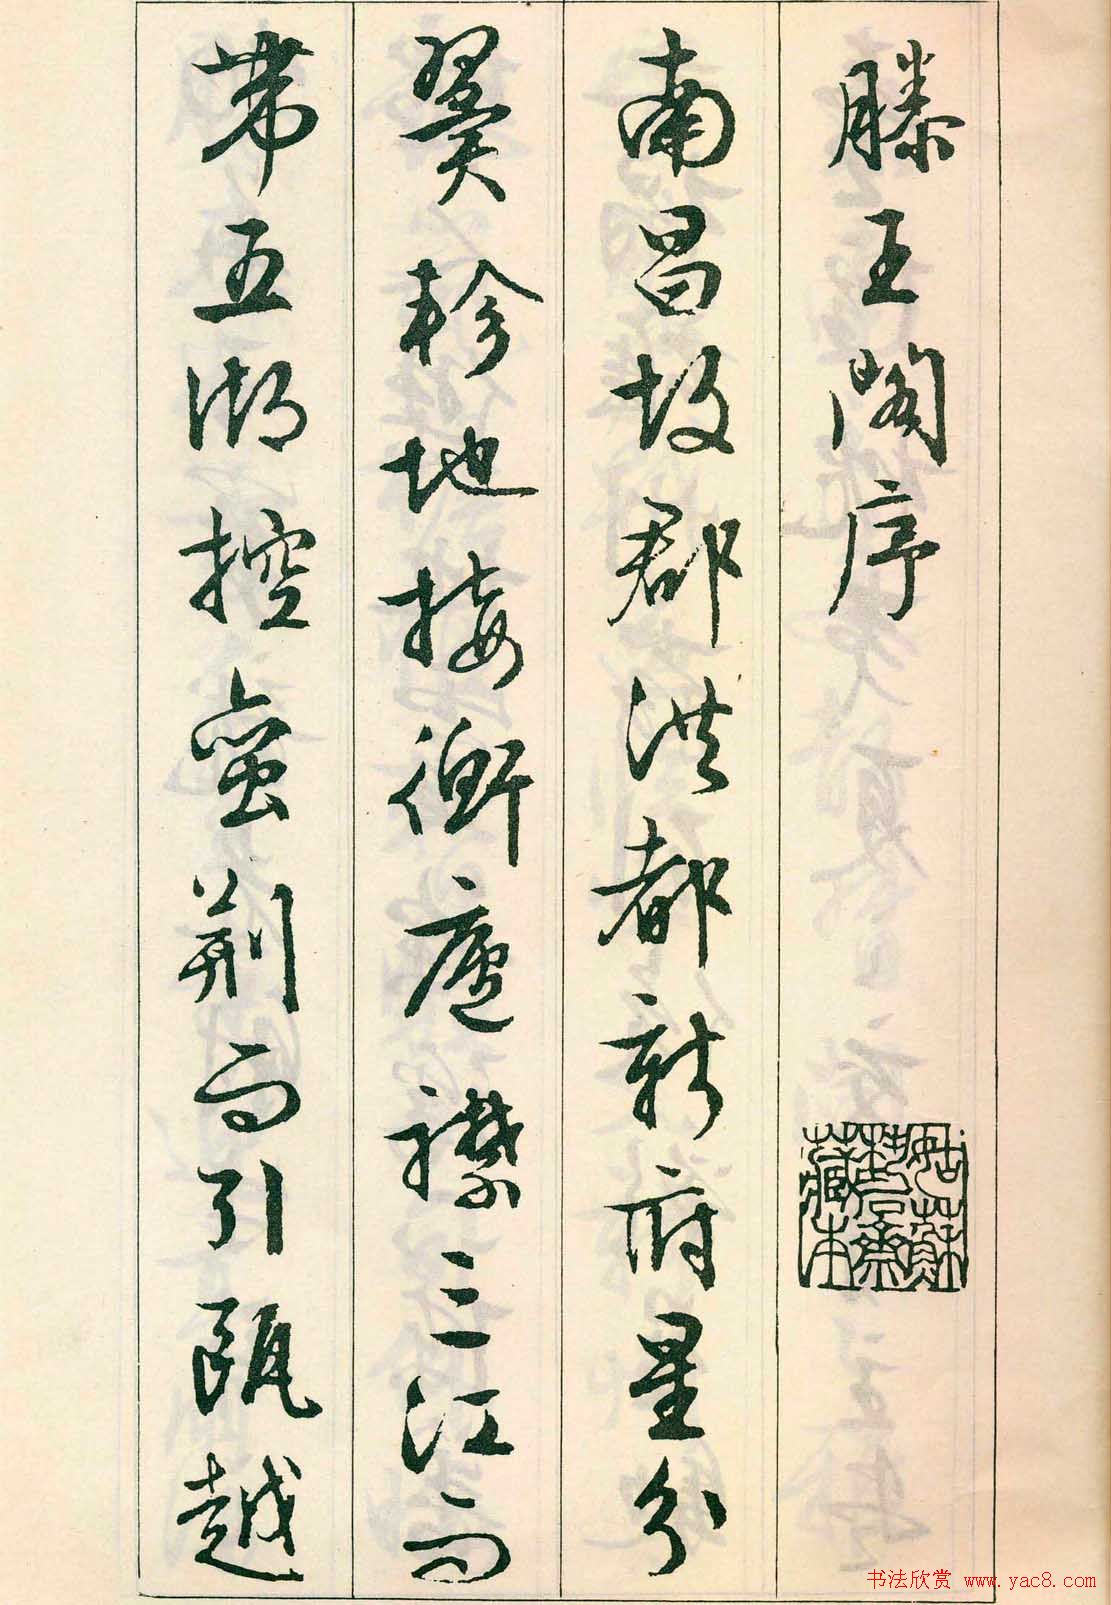 滕王閣序
南昌故郡洪都新府星分
翼軫地接衡廬襟三江而
帶五湖控蠻荆而引甌越
书法欣赏 www.yac8.com